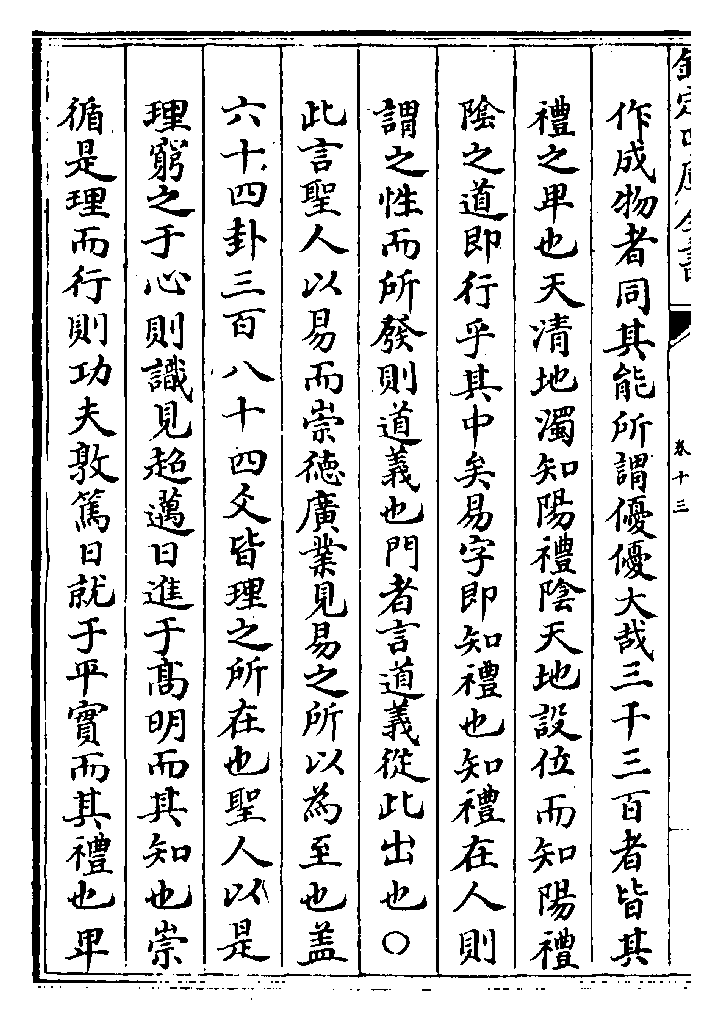 欽定四庫全書
卷十三
作成物者同其能所謂優優大哉三千三百者皆其
禮之卑也天清地濁知陽禮陰天地設位而知陽禮
陰之道即行乎其中矣易字即知禮也知禮在人則
謂之性而所發則道義也門者言道義從此出也〇
此言聖人以易而崇德廣業見易之所以為至也盖
六十四卦三百八十四爻皆理之所在也聖人以是
理窮之于心則識見超邁日進于高明而其知也崇
循是理而行則功夫敦篤日就于平實而其禮也卑